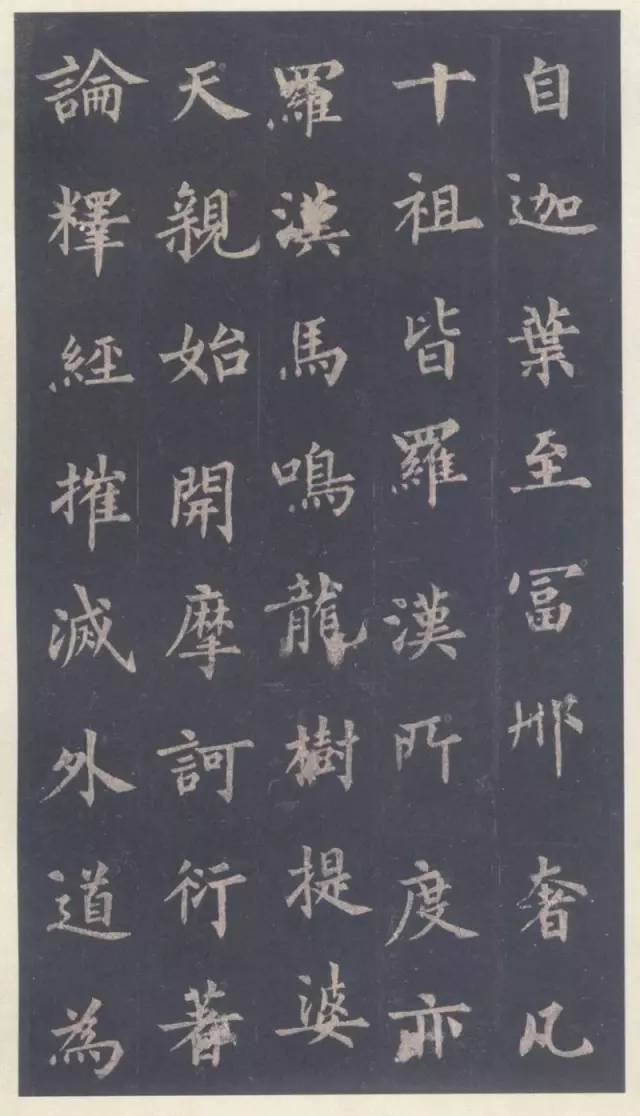 自迦葉至冨那奢凡
十祖皆羅漢所度亦
羅漢馬鳴龍樹提婆
天親始開摩訶衍著
論釋經摧滅外道為